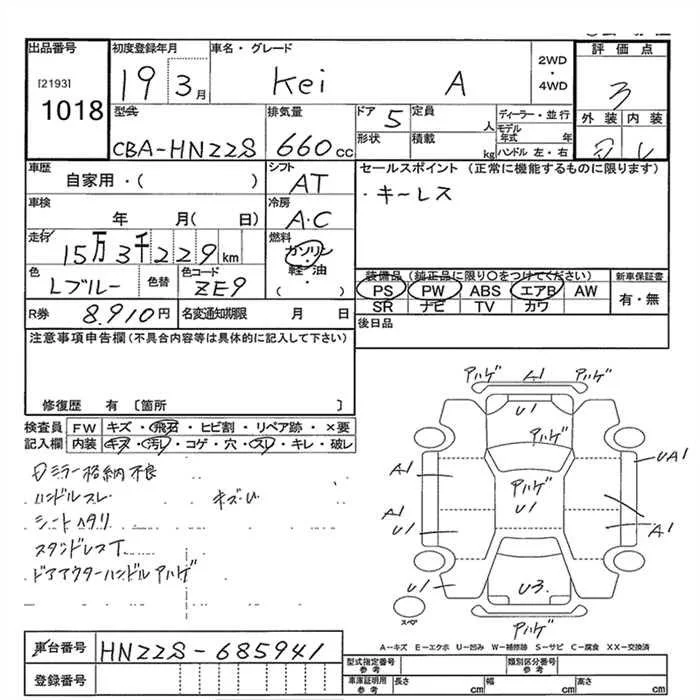 出品番号 初度登録年月 車名・グレード 2WD・4WD 評価点
[2193] 1018 19 3月 Kei A 3
型式 排気量 ドア 5 定員 人 ディーラー・並行 外装 内装
CBA-HN22S 660cc 形状 積載 kg モデル年式 年 ハンドル 左・右
車歴 シフト セールスポイント (正常に機能するものに限ります)
自家用・( ) AT ・キーレス
車検 冷房
年 月( 日) A・C
走行 燃料
15万3千229km ガソリン・軽・油 ( )
色 色替 色コード 装備品 (純正品に限り○をつけてください) 新車保証書
Lブルー ZE9 PS PW ABS エアB AW 有・無
SR ナビ TV カワ
R券 8.910円 名変通知期限 月 日 後日品
注意事項申告欄(不具合内容等は具体的に記入して下さい)
修復歴 有 〔箇所 〕
検査員 FW キズ・飛石・ヒビ割・リペア跡・×要
記入欄 内装 キズ・汚れ・コゲ・穴・スレ・キレ・破レ
ミラー格納不良
ハンドルスレ キズ・U
シートヘタリ
スタッドレスT
ドアアウターハンドルアハゲ
アハゲ A1 アハゲ
U1
アハゲ
A1 アハゲ UA1
U1
A1 A1
U1
U1 U3
スペア アハゲ
A-キズ E-エクボ U-凹み W-補修跡 S-サビ C-腐食 XX-交換済
車台番号 HN22S-685941
型式指定番号 参考 類別区分番号 参考
登録番号
車庫証明用 参考 長さ cm 幅 cm 高さ cm